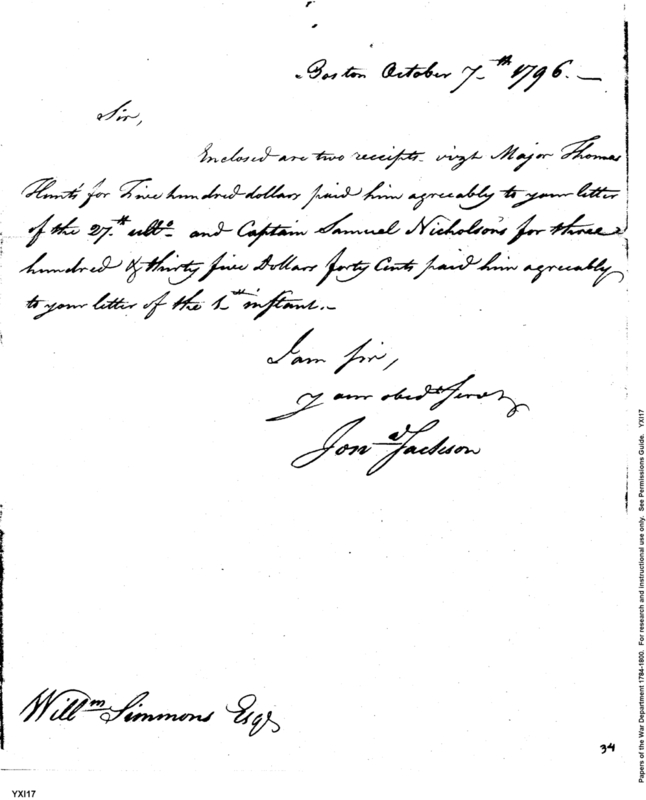 Boston October 7th 1796. —
Sir,
Enclosed are two receipts vizt Major Thomas
Hunt's for Five hundred dollars paid him agreeably to your letter
of the 27th ulto and Captain Samuel Nicholson's for three
hundred & thirty five Dollars forty Cents paid him agreeably
to your letter of the instant. —
I am Sir,
your obedt Servt
Jona Jackson
Willm Simmons Esqr
34
YXI17
Papers of the War Department 1784-1800. For research and instructional use only. See Permissions Guide. YXI17